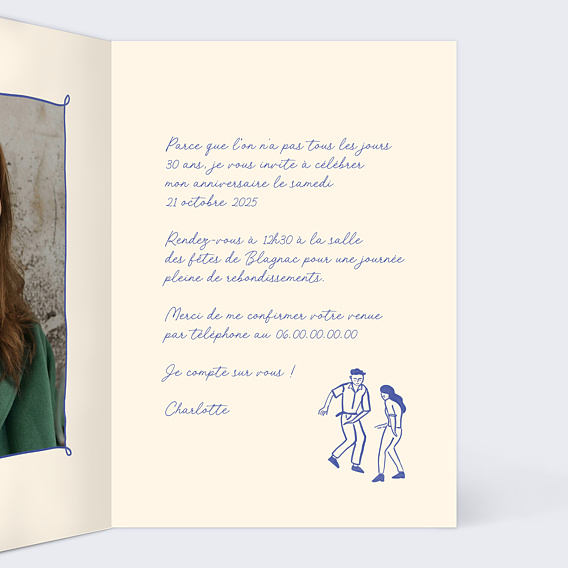 Parce que l'on n'a pas tous les jours
30 ans, je vous invite à célébrer
mon anniversaire le samedi
21 octobre 2025
Rendez-vous à 12h30 à la salle
des fêtes de Blagnac pour une journée
pleine de rebondissements.
Merci de me confirmer votre venue
par téléphone au 06.00.00.00.00
Je compte sur vous !
Charlotte